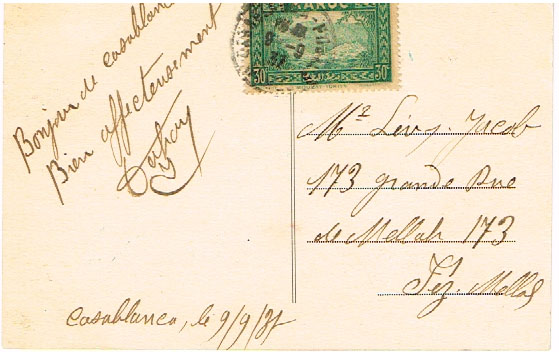 Bonjour de Casablanca
Bien affecteusement
MAROC
30 30
Mr Levy. Jacob
173 grande Rue
de Mellah 173
Féz. Mellah
Casablanca, le 9/9/3